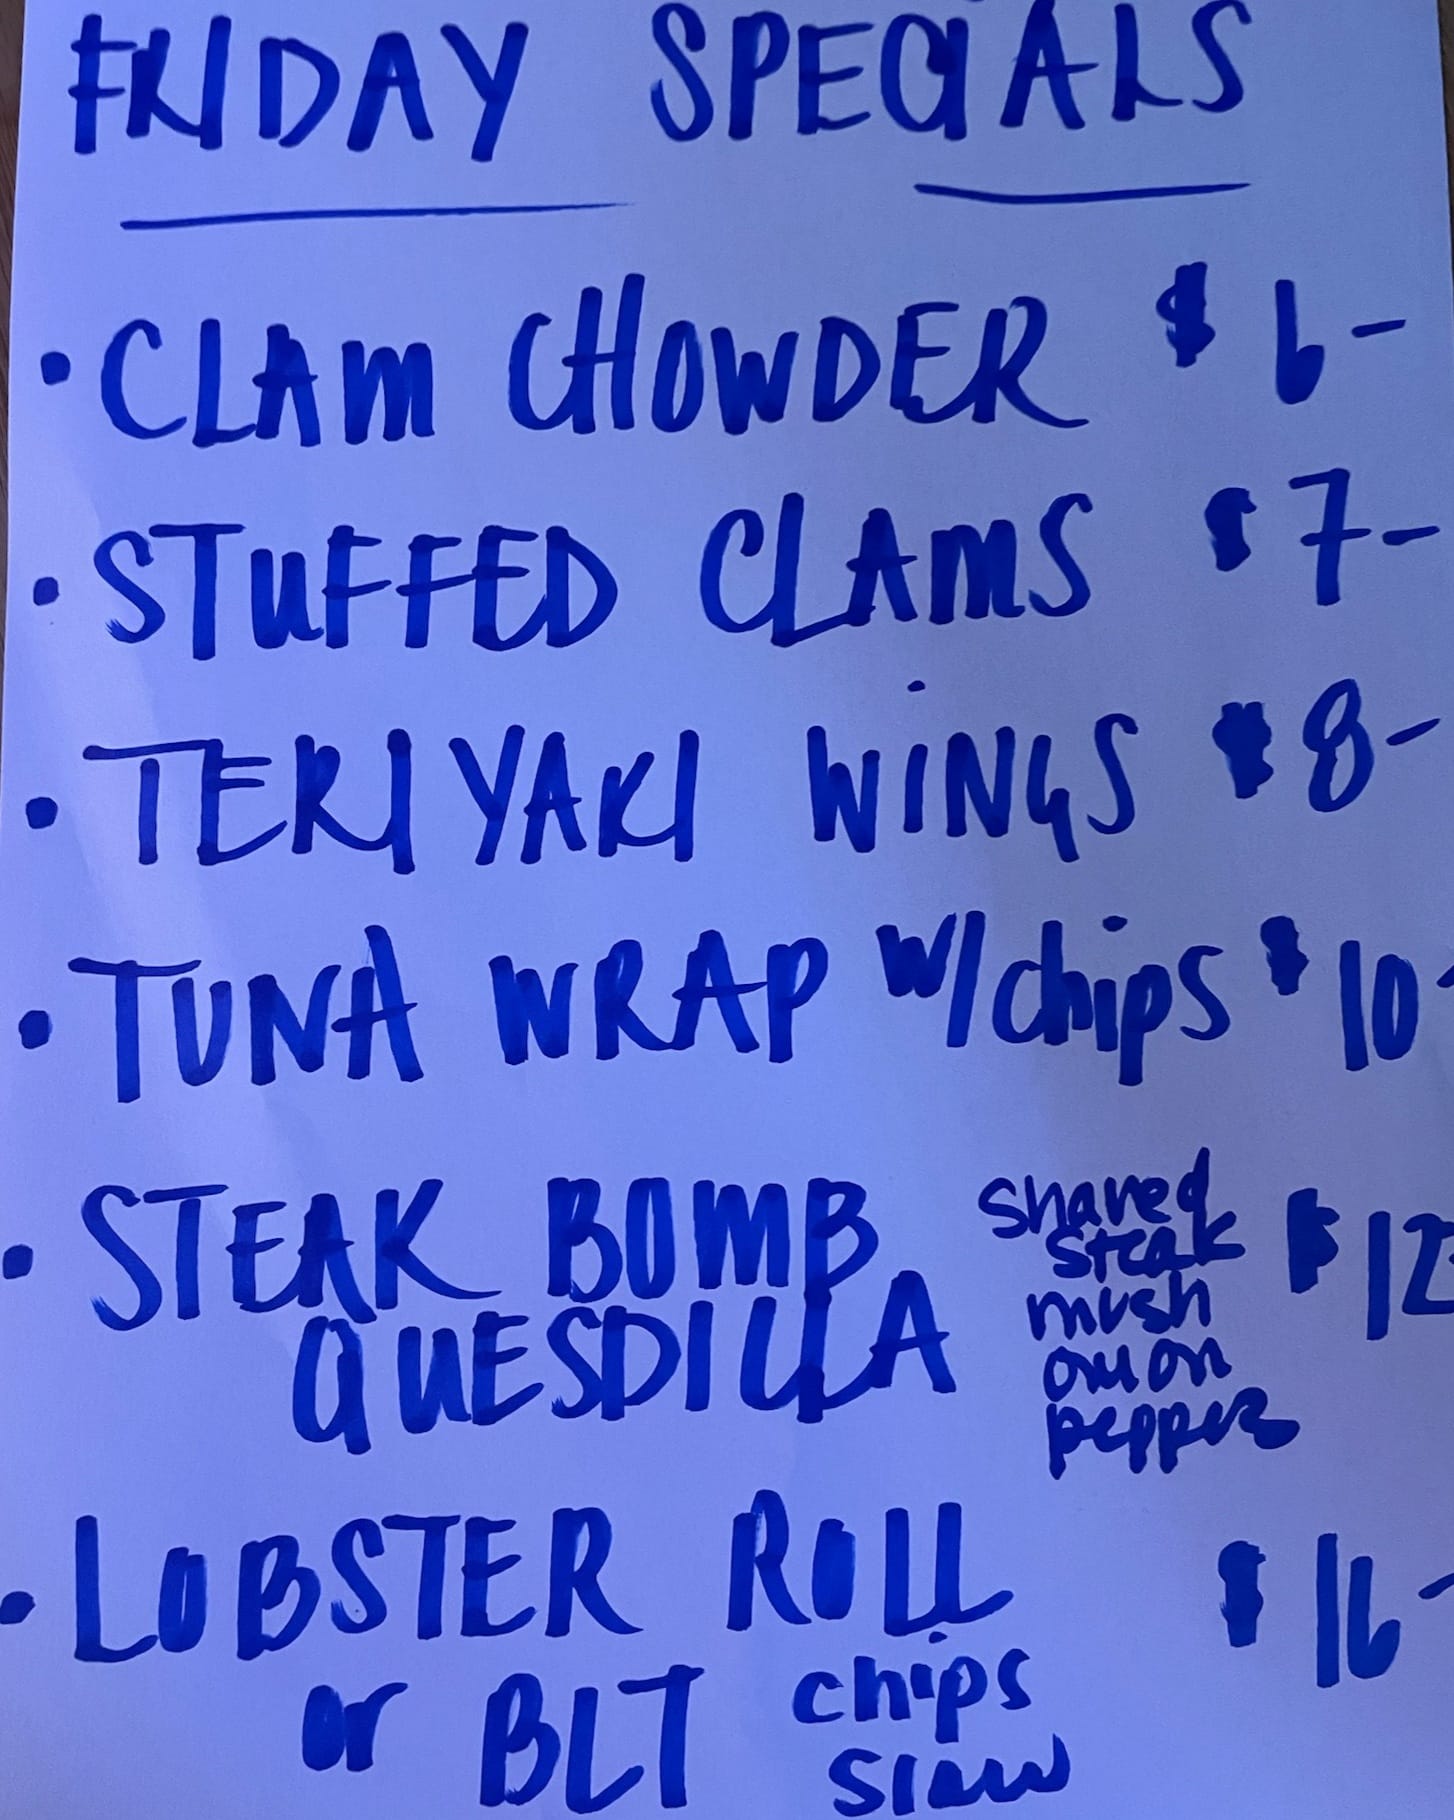 FRIDAY SPECIALS
• CLAM CHOWDER $6-
• STUFFED CLAMS $7-
• TERIYAKI WINGS $8-
• TUNA WRAP w/chips $10-
• STEAK BOMB shaved $12-
steak
QUESDILLA mush
onion
pepper
• LOBSTER ROLL $16-
or BLT chips
slaw